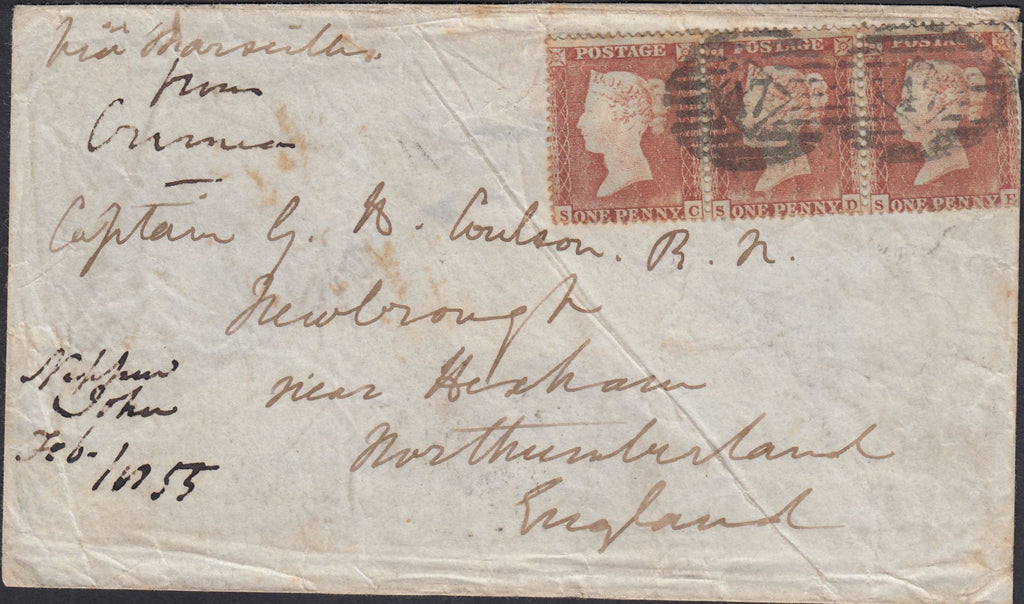 Viâ Marseilles
from
Crimea
POSTAGE POSTAGE POSTAGE
S ONE PENNY C S ONE PENNY D S ONE PENNY E
Captain G. B. Coulson. R. N.
Newbrough
near Hexham
Northumberland
England
John
Feb. 1855